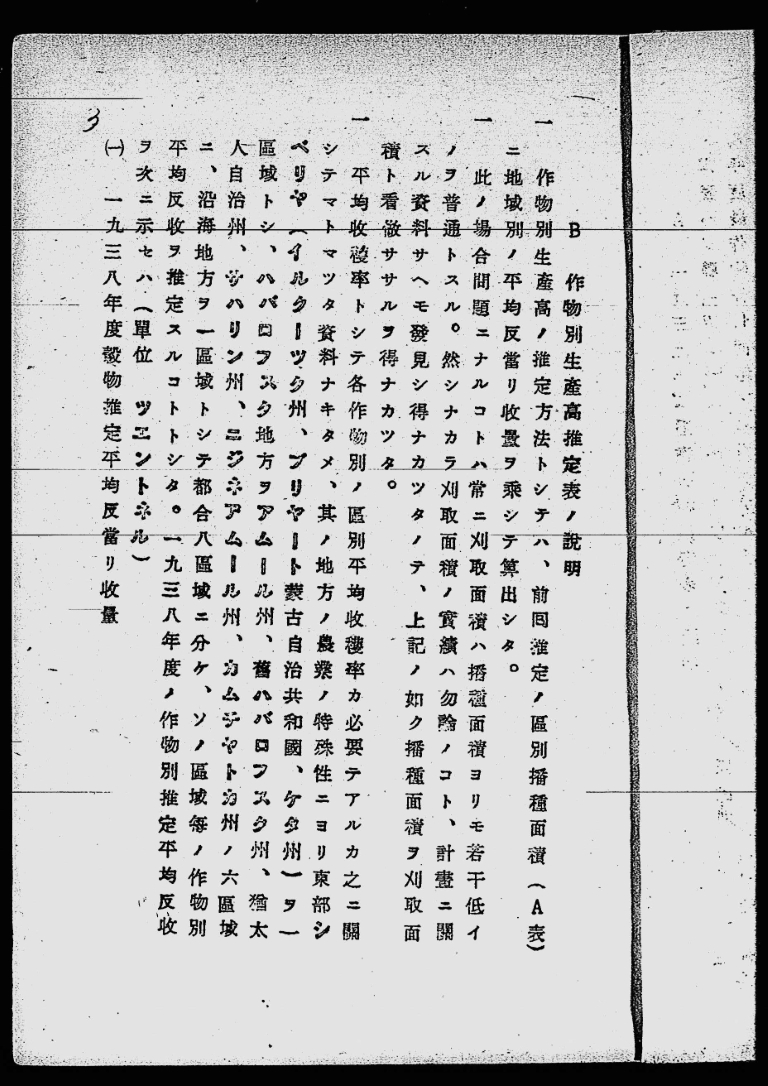 B 作物別生產高推定表ノ說明
一 作物別生產高ノ推定方法トシテハ、前囘推定ノ區別播種面積(A表)
ニ地域別ノ平均反當リ收量ヲ乘シテ算出シタ。
一 此ノ場合問題ニナルコトハ常ニ刈取面積ハ播種面積ヨリモ若干低イ
ノヲ普通トスル。然シナカラ刈取面積ノ實績ハ勿論ノコト、計畫ニ關
スル資料サヘモ發見シ得ナカツタノテ、上記ノ如ク播種面積ヲ刈取面
積ト看做サザルヲ得ナカツタ。
一 平均收穫率トシテ各作物別ノ區別平均收穫率カ必要テアルカ之ニ關
シテマトマツタ資料ナキタメ、其ノ地方ノ農業ノ特殊性ニヨリ東部シ
ベリヤ(イルクーツク州、ブリヤート蒙古自治共和國、ケタ州)ヲ一
區域トシ、ハバロフスク地方ヲアムール州、舊ハバロフスク州、猶太
人自治州、サハリン州、ニジネアムール州、カムチヤトカ州ノ六區域
ニ、沿海地方ヲ一區域トシテ都合八區域ニ分ケ、ソノ區域每ノ作物別
平均反收ヲ推定スルコトトシタ。一九三八年度ノ作物別推定平均反收
ヲ次ニ示セハ(單位 ツエントネル)
㈠ 一九三八年度穀物推定平均反當リ收量
3